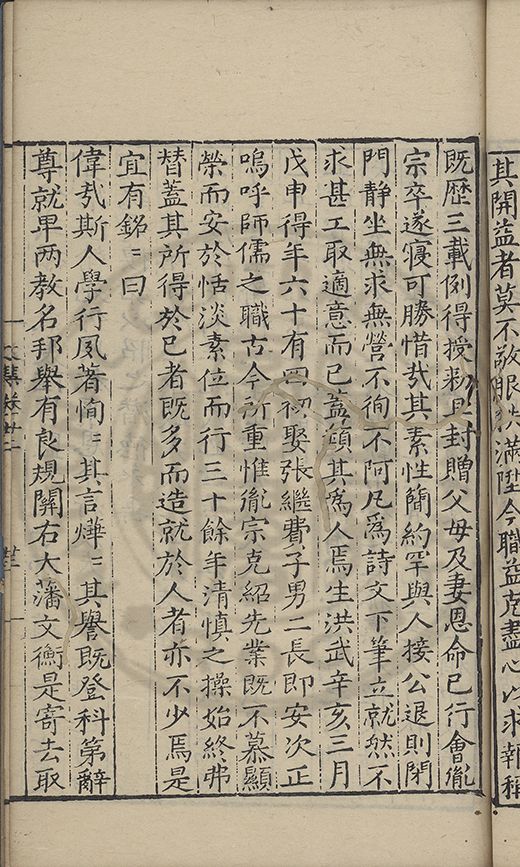 其開益者莫不敬服秩滿陞今職益克盡心以求報稱
既歴三載例得授勑且封贈父母及妻恩命已行會胤
宗卒遂寢可勝惜㢤其素性簡約罕與人接公退則閉
門静坐無求無營不徇不阿凡爲詩文下筆立就然不
求甚工取適意而已蓋類其爲人焉生洪武辛亥三月
戊申得年六十有四初娶張繼費子男二長即安次正
嗚呼師儒之職古今所重惟胤宗克紹先業既不慕顯
榮而安於恬淡素位而行三十餘年清慎之操始終弗
替蓋其所得於已者既多而造就於人者亦不少焉是
宜有銘銘曰
偉㢤斯人學行夙著恂〻其言燁〻其譽既登科第辭
尊就卑两教名邦舉有良規關右大藩文衡是寄去取
文集卷廿二